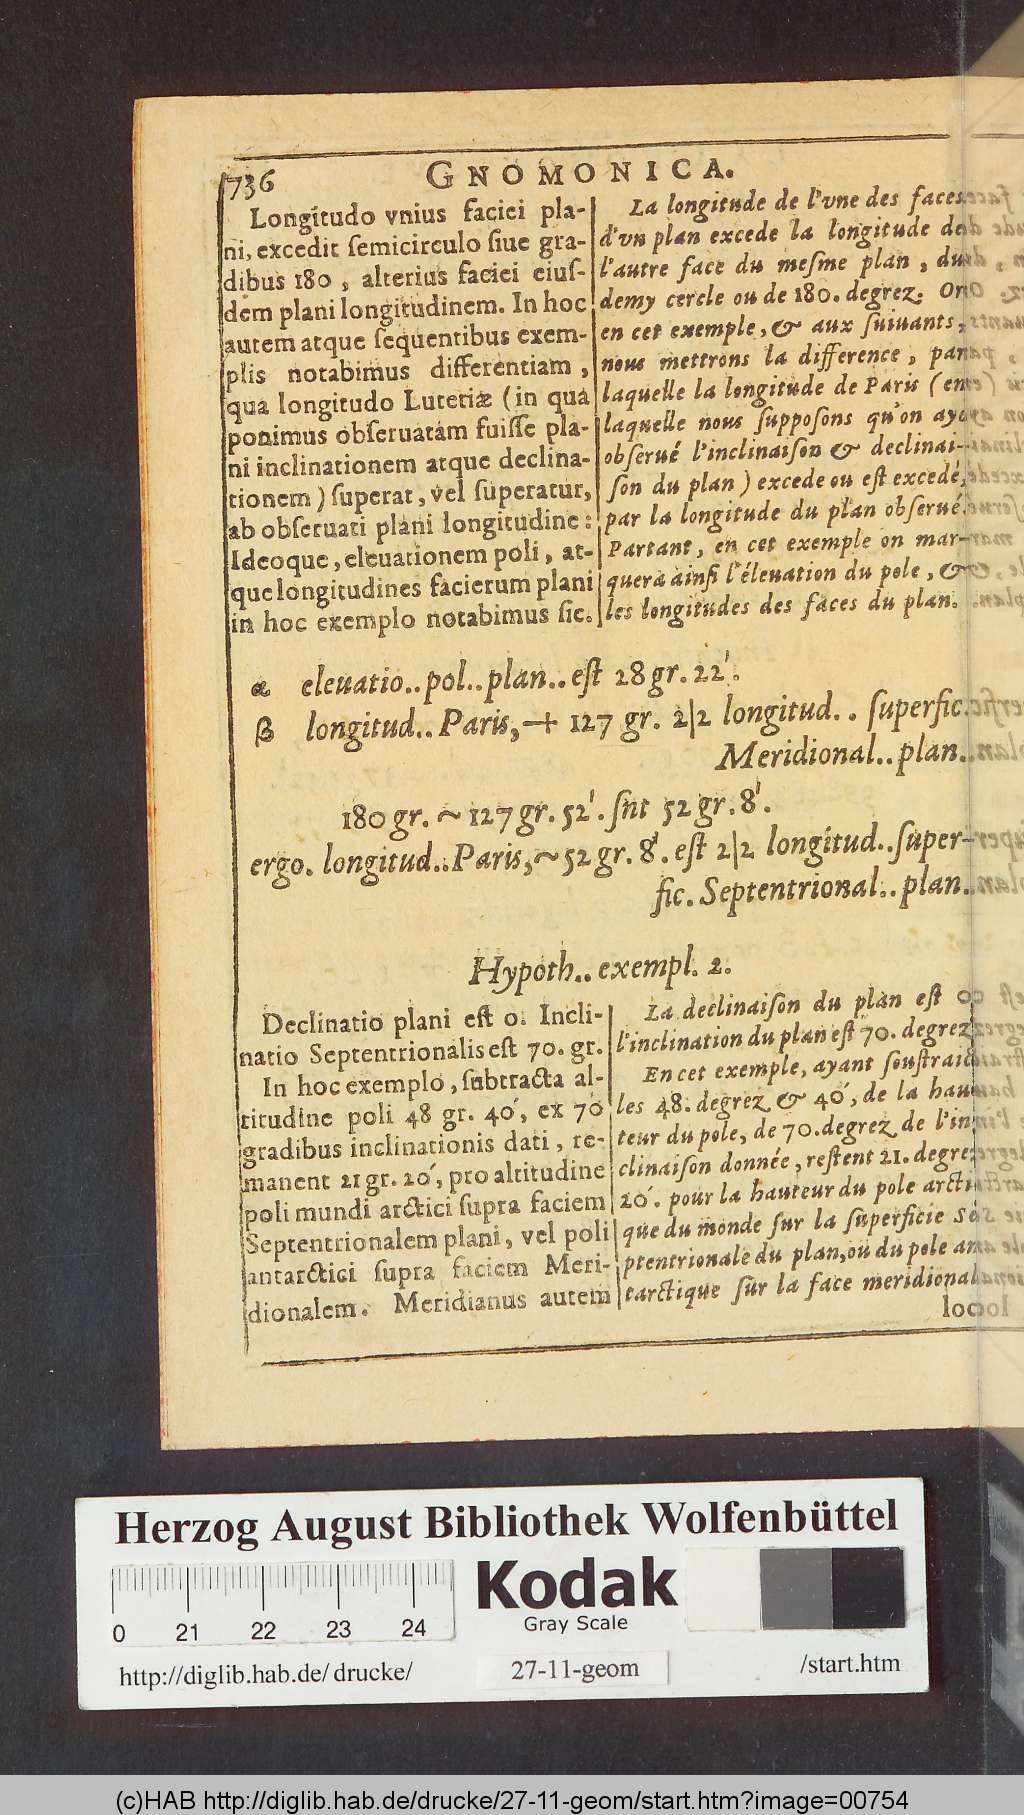 736
GNOMONICA.
Longitudo vnius faciei pla-
ni, excedit ſemicirculo ſiue gra-
dibus 180, alterius faciei eiuſ-
dem plani longitudinem. In hoc
autem atque ſequentibus exem-
plis notabimus differentiam,
qua longitudo Lutetiæ (in qua
ponimus obſeruatam fuiſſe pla-
ni inclinationem atque declina-
tionem) ſuperat, vel ſuperatur,
ab obſeruati plani longitudine:
Ideoque, eleuationem poli, at-
que longitudines facierum plani
in hoc exemplo notabimus ſic.
La longitude de l'vne des faces
d'vn plan excede la longitude de
l'autre face du meſme plan, du
demy cercle ou de 180. degrez. Or
en cet exemple, & aux ſuiuants,
nous mettrons la difference, par
laquelle la longitude de Paris (en
laquelle nous ſuppoſons qu'on ay
obſerué l'inclinaiſon & declinai-
ſon du plan) excede ou eſt excedé,
par la longitude du plan obſerué.
Partant, en cet exemple on mar-
quera ainſi l'éleuation du pole, &
les longitudes des faces du plan.
α eleuatio..pol..plan..eſt 28 gr. 22'.
β longitud..Paris, + 127 gr. 2|2 longitud.. ſuperfic.
Meridional..plan..
180 gr. ~ 127 gr. 52'. ſnt 52 gr. 8'.
ergo. longitud..Paris, ~ 52 gr. 8'. eſt 2|2 longitud..ſuper-
fic. Septentrional..plan..
Hypoth..exempl. 2.
Declinatio plani eſt 0. Incli-
natio Septentrionalis eſt 70. gr.
In hoc exemplo, ſubtracta al-
titudine poli 48 gr. 40', ex 70
gradibus inclinationis dati, re-
manent 21 gr. 20', pro altitudine
poli mundi arctici ſupra faciem
Septentrionalem plani, vel poli
antarctici ſupra faciem Meri-
dionalem. Meridianus autem
La declinaiſon du plan eſt 0
l'inclination du plan eſt 70. degrez
En cet exemple, ayant ſouſtraic
les 48. degrez & 40', de la hau
teur du pole, de 70. degrez de l'in
clinaiſon donnée, reſtent 21. degrez
20'. pour la hauteur du pole arcti
que du monde ſur la ſuperficie Se
ptentrionale du plan, ou du pole an
tarctique ſur la face meridional
loco
Herzog August Bibliothek Wolfenbüttel
0 21 22 23 24
Kodak
Gray Scale
http://diglib.hab.de/drucke/
27-11-geom
/start.htm
(c)HAB http://diglib.hab.de/drucke/27-11-geom/start.htm?image=00754